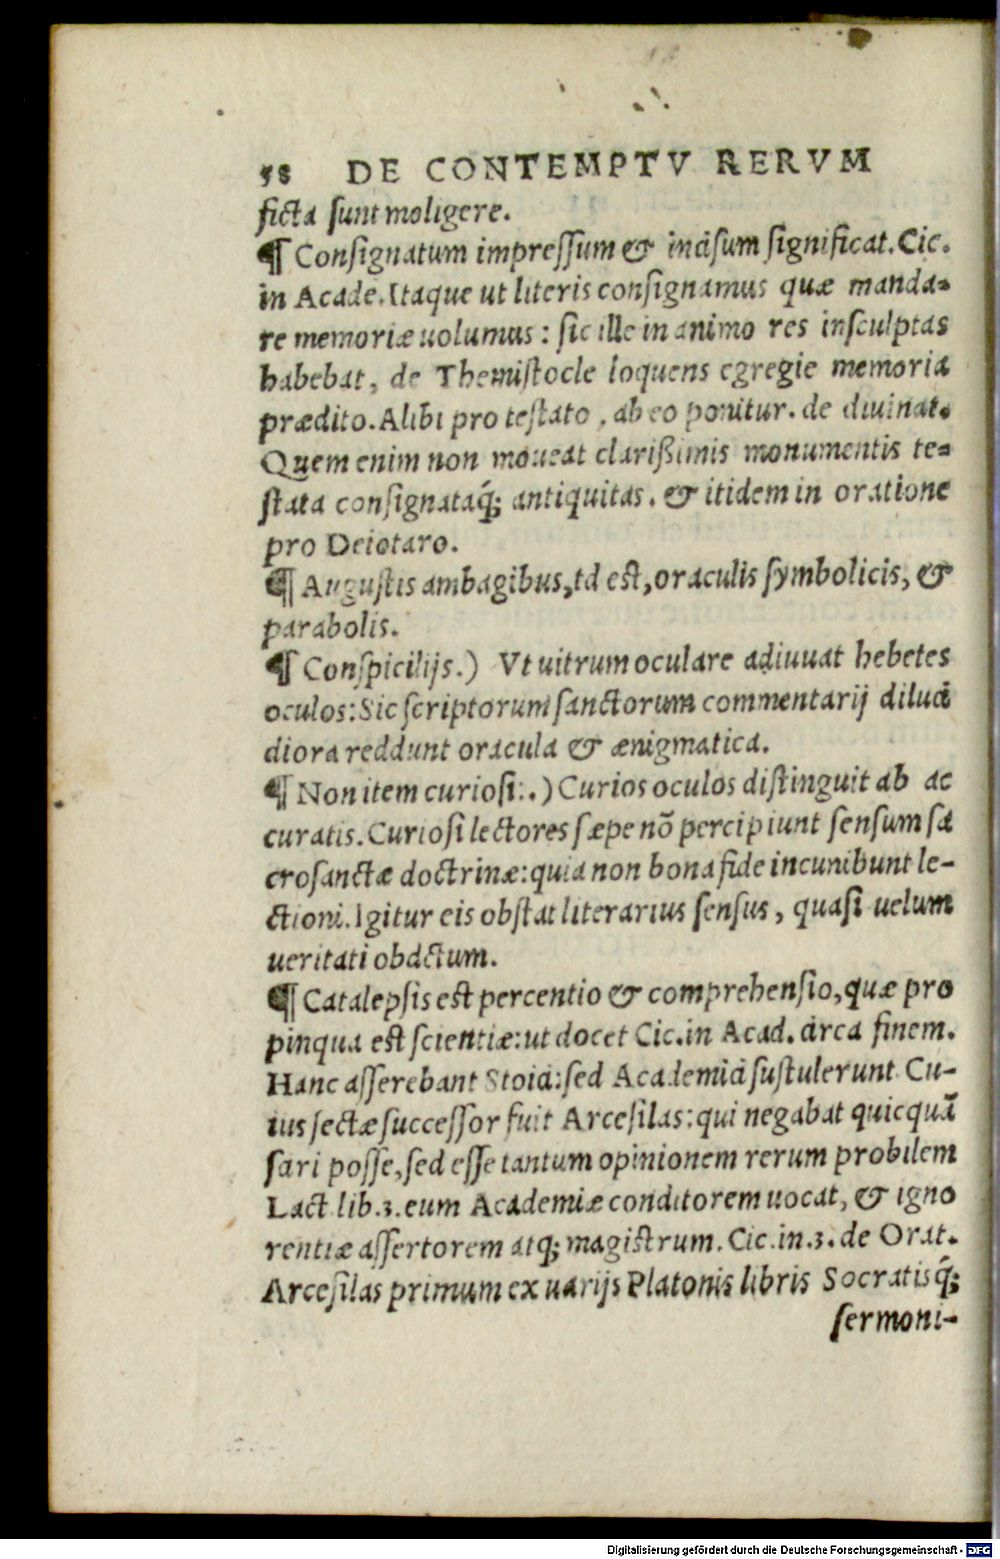 58 DE CONTEMPTV RERVM
ficta sunt moligere.
¶ Consignatum impressum & incisum significat. Cic.
in Acade. Itaque ut literis consignamus quæ manda-
re memoriæ uolumus: sic ille in animo res insculptas
habebat, de Themistocle loquens egregie memoria
prædito. Alibi pro testato, ab eo ponitur. de diuinat.
Quem enim non moueat clarißimis monumentis te-
stata consignataq́; antiquitas. & itidem in oratione
pro Deiotaro.
¶ Augustis ambagibus, td est, oraculis symbolicis, &
parabolis.
¶ Conspicilijs.) Vt uitrum oculare adiuuat hebetes
oculos: Sic scriptorum sanctorum commentarij diluci
diora reddunt oracula & ænigmatica.
¶ Non item curiosi:.) Curios oculos distinguit ab ac
curatis. Curiosi lectores sæpe nõ percipiunt sensum sa
crosanctæ doctrinæ: quia non bona fide incumbunt le-
ctioni. Igitur eis obstat literarius sensus, quasi uelum
ueritati obdctum.
¶ Catalepsis est percentio & comprehensio, quæ pro
pinqua est scientiæ: ut docet Cic. in Acad. circa finem.
Hanc asserebant Stoici: sed Academici sustulerunt. Cu-
ius sectæ successor fuit Arcesilas: qui negabat quicquã
sari posse, sed esse tantum opinionem rerum probilem
Lact lib. 3. eum Academiæ conditorem uocat, & igno
rentiæ assertorem atq; magistrum. Cic. in. 3. de Orat.
Arcesilas primum ex uarijs Platonis libris Socratisq́;
sermoni-
Digitalisierung gefördert durch die Deutsche Forschungsgemeinschaft - DFG